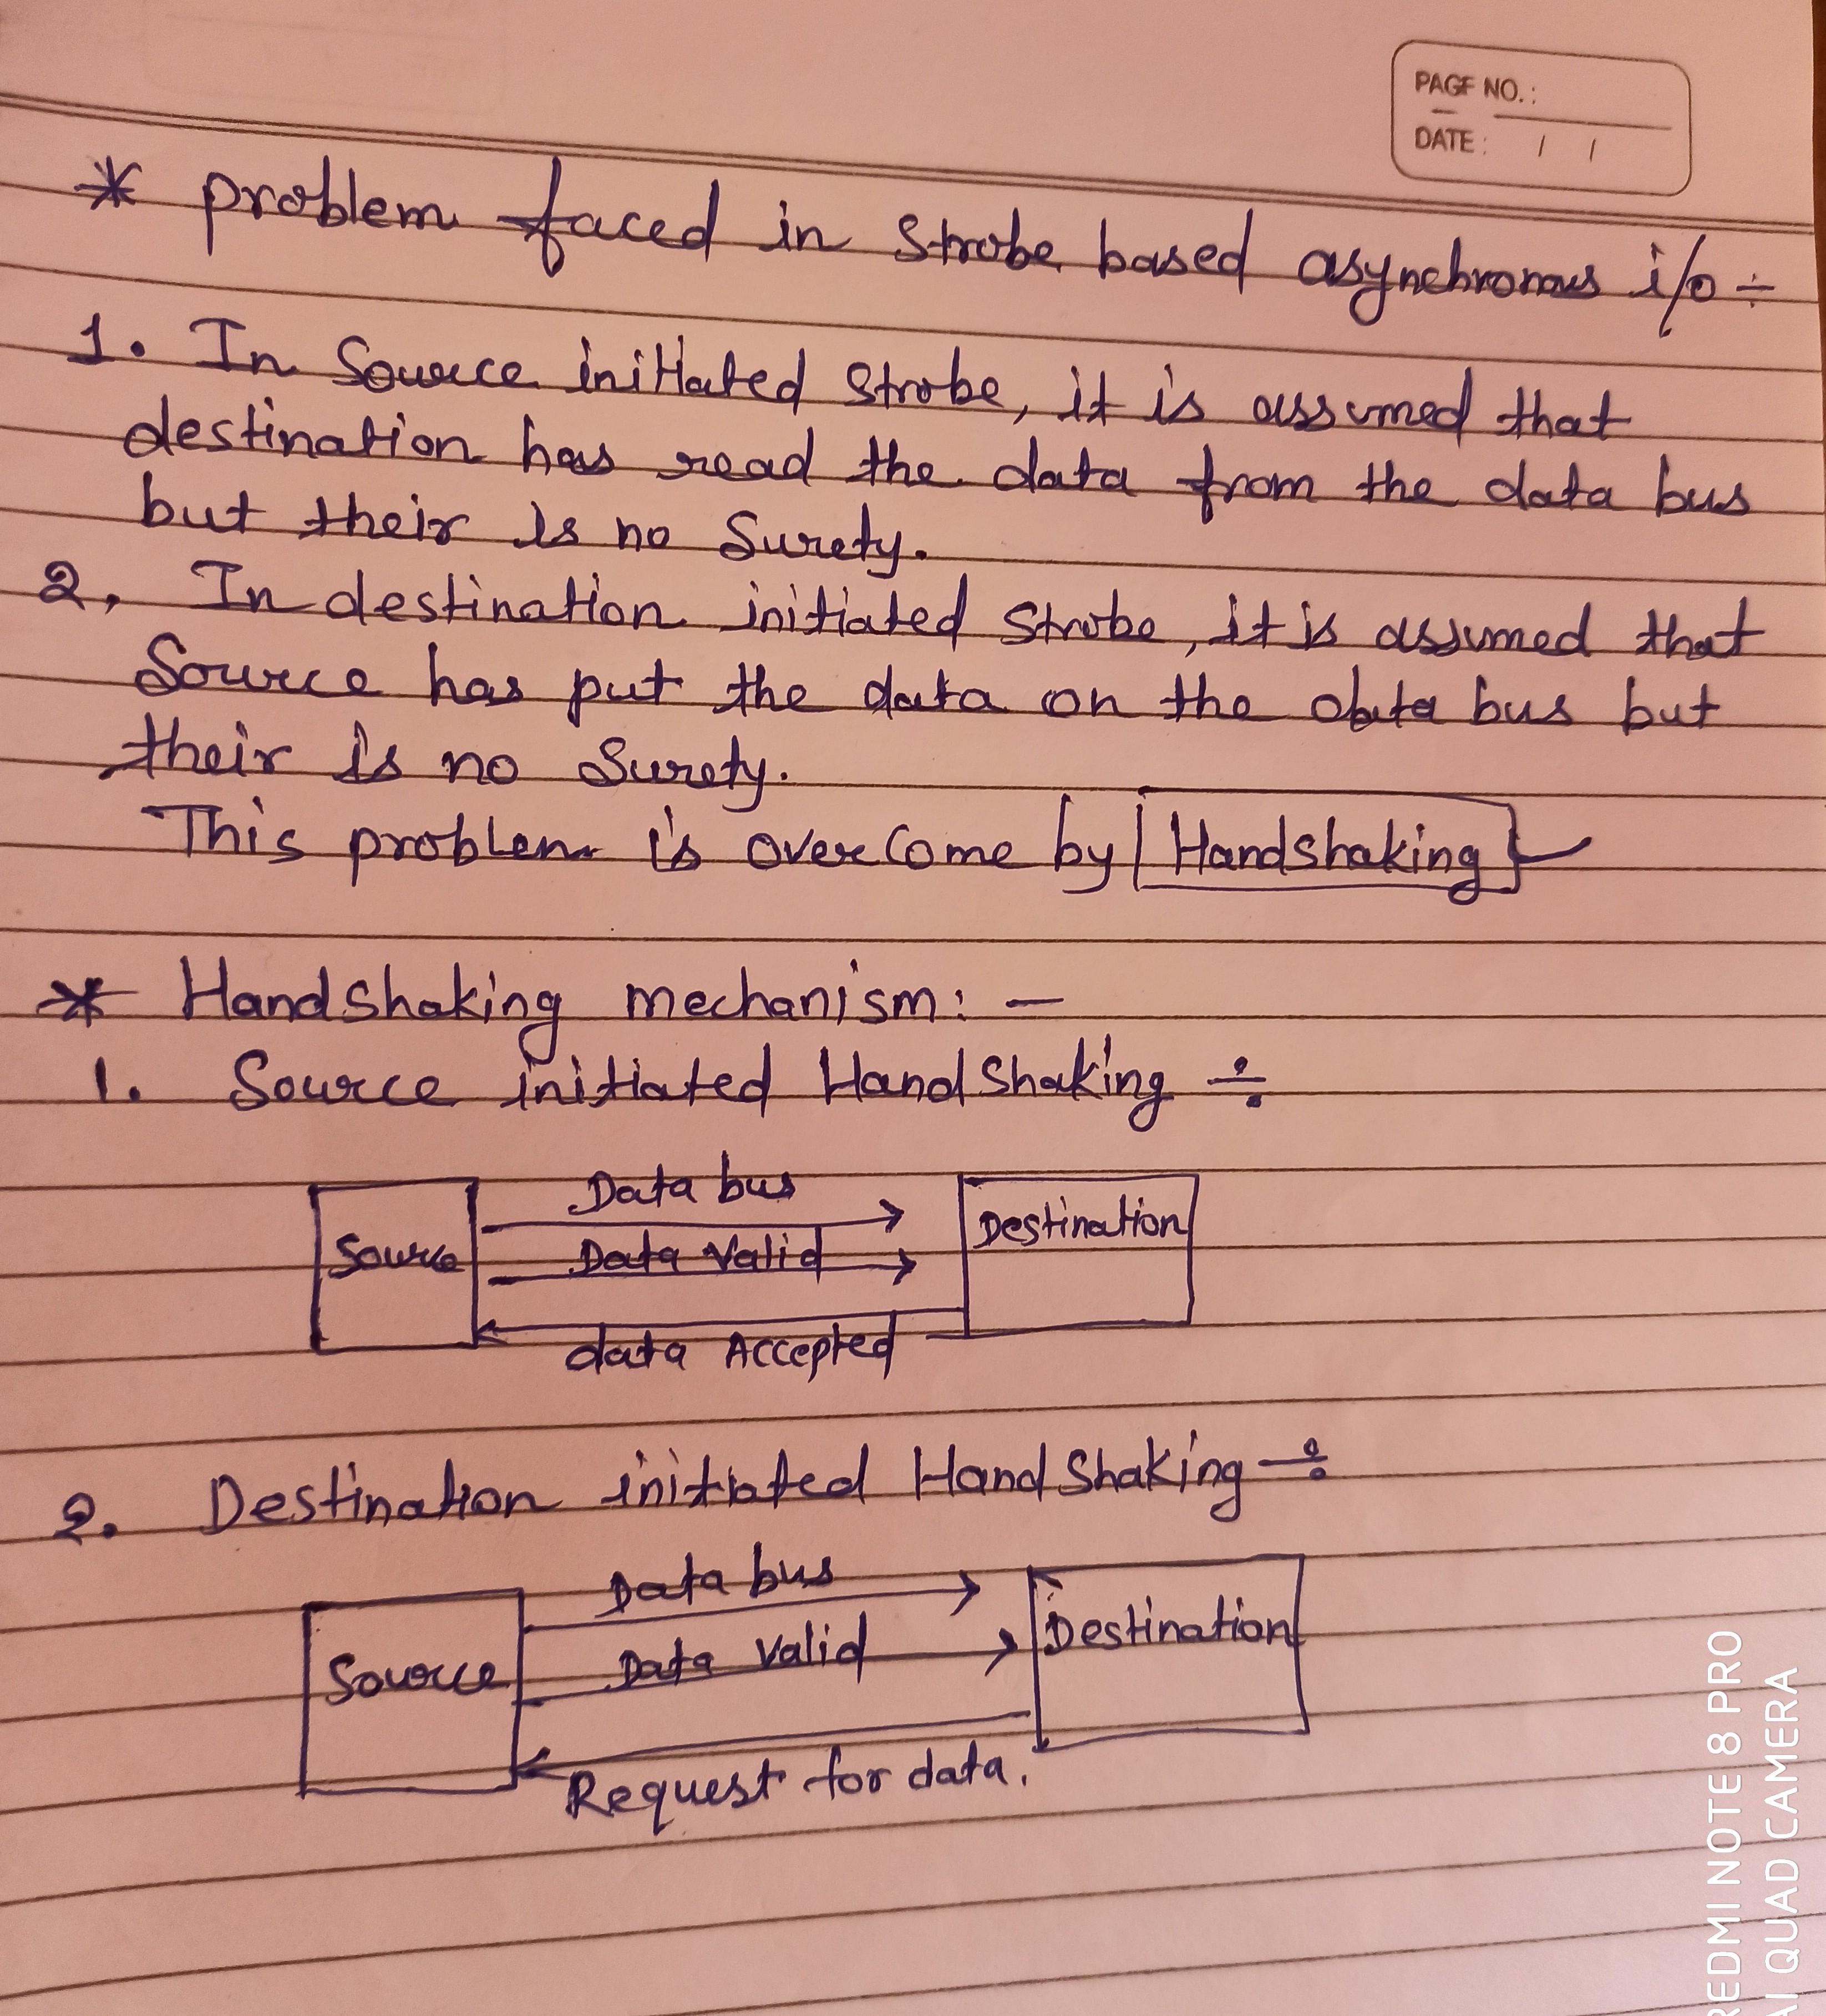 PAGE NO.:
DATE: / /
* problem faced in strobe based asynchronous i/o ÷
1. In Source initiated strobe, it is assumed that
destination has read the data from the data bus
but their is no surety.
2. In destination initiated strobe, it is assumed that
Source has put the data on the data bus but
their is no surety.
This problem is overcome by Handshaking
* Handshaking mechanism: -
1. Source initiated HandShaking ÷
Data bus
Source
Destination
Data Valid
data Accepted
2. Destination initiated HandShaking ÷
Data bus
Destination
Source
Data Valid
Request for data.
REDMI NOTE 8 PRO
AI QUAD CAMERA